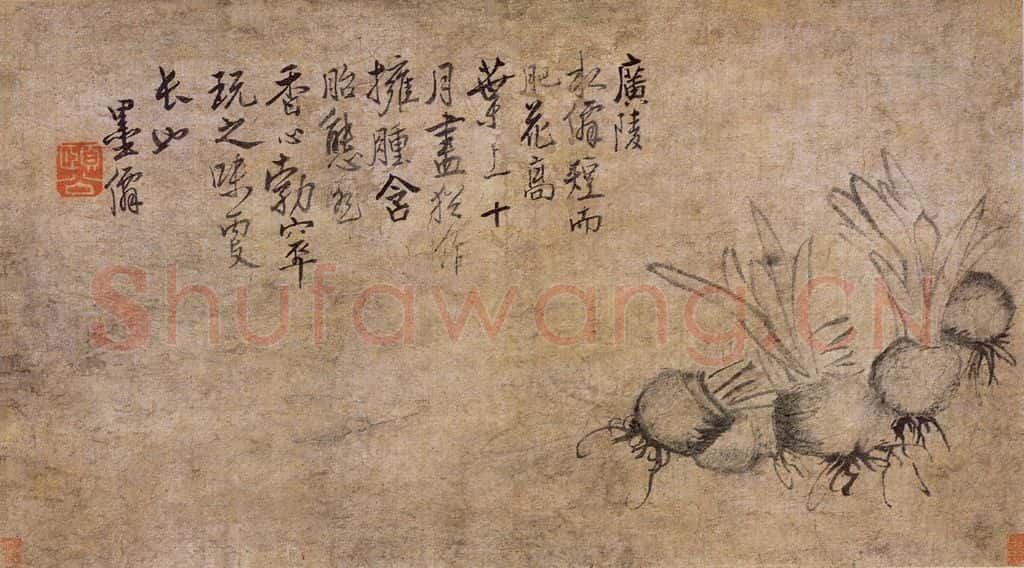 廣陵
水僊短而
肥花高
葉上十
月盡猶作
擁腫含
胎態然
香心勃窣
玩之味更
长也
墨僊
頤公
Shufawang.CN